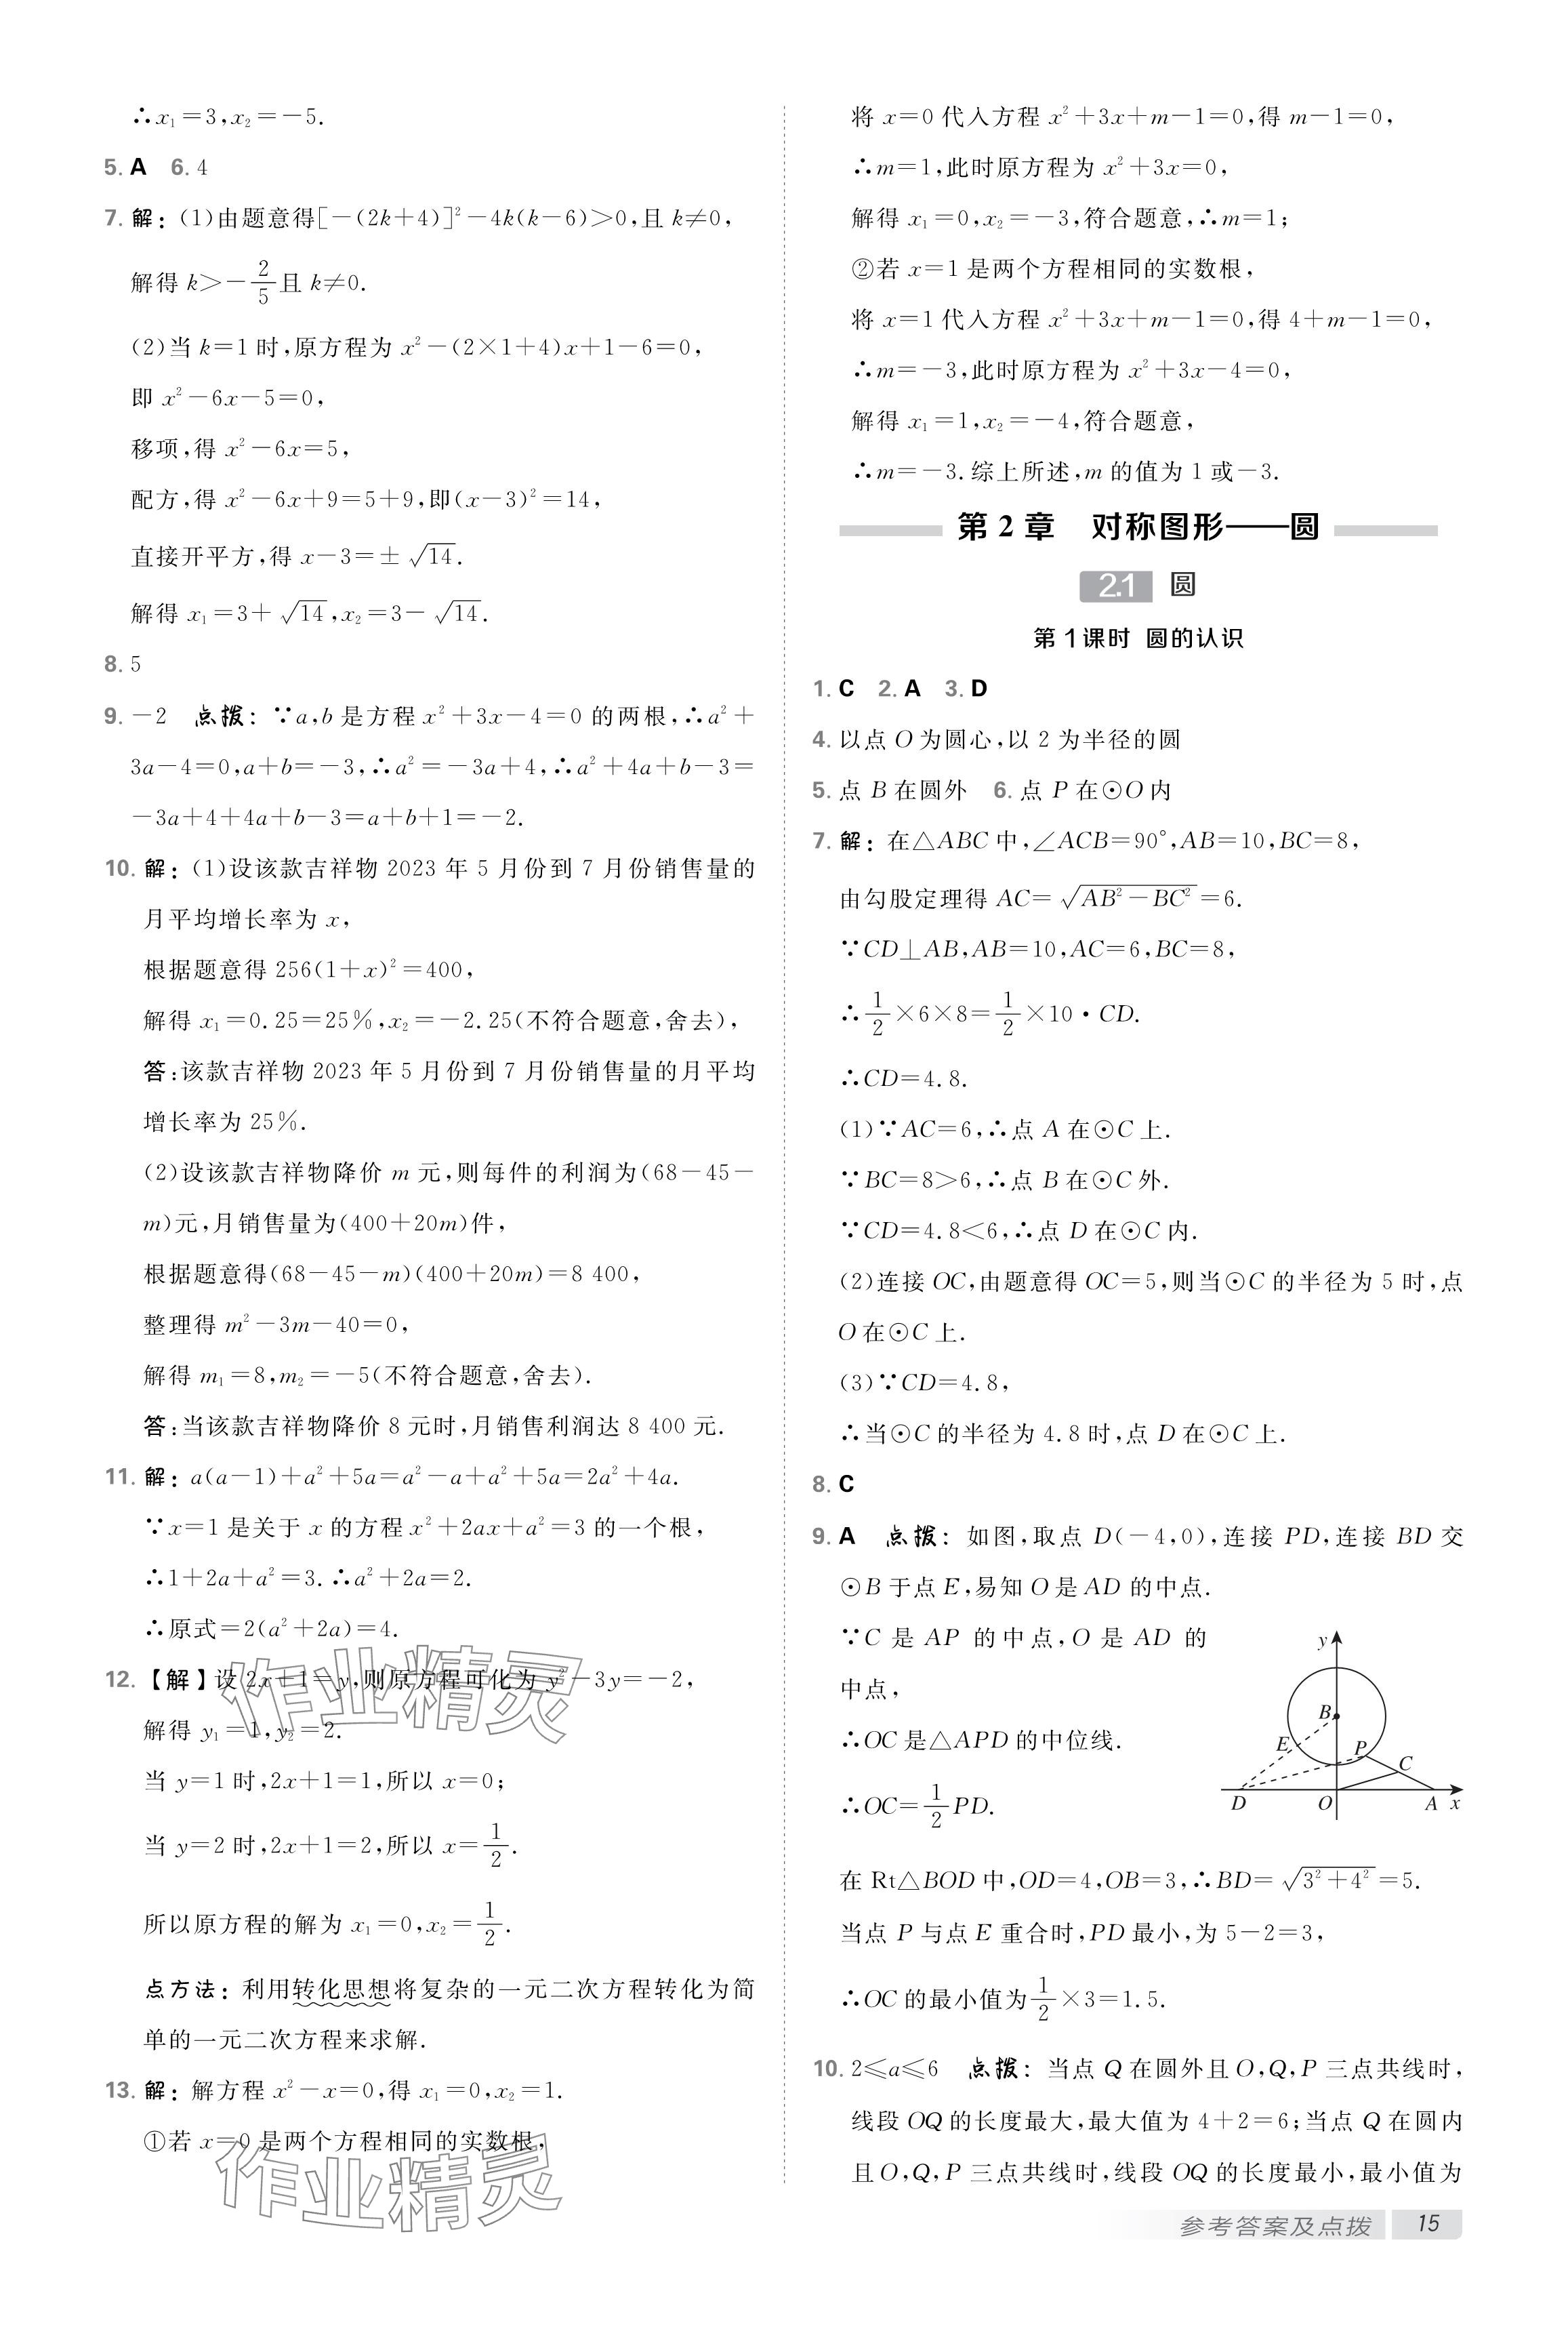 ∴x₁=3,x₂=-5.
5. A 6. 4
7. 解：(1)由题意得[-(2k+4)]²-4k(k-6)>0,且 k≠0,
解得 k>-2/5且 k≠0.
(2)当 k=1 时,原方程为 x²-(2×1+4)x+1-6=0,
即 x²-6x-5=0,
移项,得 x²-6x=5,
配方,得 x²-6x+9=5+9,即(x-3)²=14,
直接开平方,得 x-3=±√14.
解得 x₁=3+√14,x₂=3-√14.
8. 5
9. -2 点拨：∵a,b 是方程 x²+3x-4=0 的两根,∴a²+
3a-4=0,a+b=-3,∴a²=-3a+4,∴a²+4a+b-3=
-3a+4+4a+b-3=a+b+1=-2.
10. 解：(1)设该款吉祥物 2023 年 5 月份到 7 月份销售量的
月平均增长率为 x,
根据题意得 256(1+x)²=400,
解得 x₁=0.25=25%,x₂=-2.25(不符合题意,舍去),
答:该款吉祥物 2023 年 5 月份到 7 月份销售量的月平均
增长率为 25%.
(2)设该款吉祥物降价 m 元,则每件的利润为(68-45-
m)元,月销售量为(400+20m)件,
根据题意得(68-45-m)(400+20m)=8 400,
整理得 m²-3m-40=0,
解得 m₁=8,m₂=-5(不符合题意,舍去).
答:当该款吉祥物降价 8 元时,月销售利润达 8 400 元.
11. 解：a(a-1)+a²+5a=a²-a+a²+5a=2a²+4a.
∵x=1 是关于 x 的方程 x²+2ax+a²=3 的一个根,
∴1+2a+a²=3.∴a²+2a=2.
∴原式=2(a²+2a)=4.
12.【解】设 2x+1=y,则原方程可化为 y²-3y=-2,
解得 y₁=1,y₂=2.
当 y=1 时,2x+1=1,所以 x=0;
当 y=2 时,2x+1=2,所以 x=1/2.
所以原方程的解为 x₁=0,x₂=1/2.
点方法：利用转化思想将复杂的一元二次方程转化为简
单的一元二次方程来求解.
13. 解：解方程 x²-x=0,得 x₁=0,x₂=1.
①若 x=0 是两个方程相同的实数根,
作业精灵
作业精灵
将 x=0 代入方程 x²+3x+m-1=0,得 m-1=0,
∴m=1,此时原方程为 x²+3x=0,
解得 x₁=0,x₂=-3,符合题意,∴m=1;
②若 x=1 是两个方程相同的实数根,
将 x=1 代入方程 x²+3x+m-1=0,得 4+m-1=0,
∴m=-3,此时原方程为 x²+3x-4=0,
解得 x₁=1,x₂=-4,符合题意,
∴m=-3.综上所述,m 的值为 1 或-3.
第 2 章 对称图形——圆
2.1 圆
第 1 课时 圆的认识
1. C 2. A 3. D
4. 以点 O 为圆心,以 2 为半径的圆
5. 点 B 在圆外 6. 点 P 在⊙O 内
7. 解：在△ABC 中,∠ACB=90°,AB=10,BC=8,
由勾股定理得 AC=√(AB²-BC²)=6.
∵CD⊥AB,AB=10,AC=6,BC=8,
∴1/2×6×8=1/2×10·CD.
∴CD=4.8.
(1)∵AC=6,∴点 A 在⊙C 上.
∵BC=8>6,∴点 B 在⊙C 外.
∵CD=4.8<6,∴点 D 在⊙C 内.
(2)连接 OC,由题意得 OC=5,则当⊙C 的半径为 5 时,点
O 在⊙C 上.
(3)∵CD=4.8,
∴当⊙C 的半径为 4.8 时,点 D 在⊙C 上.
8. C
9. A 点拨：如图,取点 D(-4,0),连接 PD,连接 BD 交
⊙B 于点 E,易知 O 是 AD 的中点.
∵C 是 AP 的中点,O 是 AD 的
中点,
∴OC 是△APD 的中位线.
∴OC=1/2PD.
y
B
E
P
C
D
O
A
x
在 Rt△BOD 中,OD=4,OB=3,∴BD=√(3²+4²)=5.
当点 P 与点 E 重合时,PD 最小,为 5-2=3,
∴OC 的最小值为1/2×3=1.5.
10. 2≤a≤6 点拨：当点 Q 在圆外且 O,Q,P 三点共线时,
线段 OQ 的长度最大,最大值为 4+2=6;当点 Q 在圆内
且 O,Q,P 三点共线时,线段 OQ 的长度最小,最小值为
参考答案及点拨 15